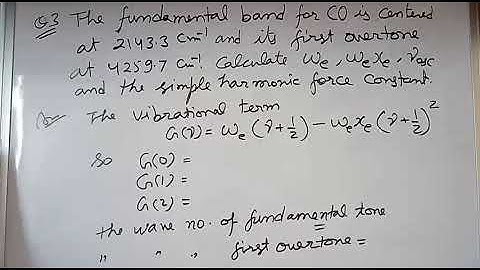 Q3 The fundamental band for CO is centered
at 2143.3 cm⁻¹ and its first overtone
at 4259.7 cm⁻¹. Calculate ωe, ωexe, νosc
and the simple harmonic force constant.
Ans The vibrational term
G(ν) = ωe (ν+1/2) - ωexe (ν+1/2)²
so G(0) =
G(1) =
G(2) =
the wave no. of fundamental tone
" " " first overtone =